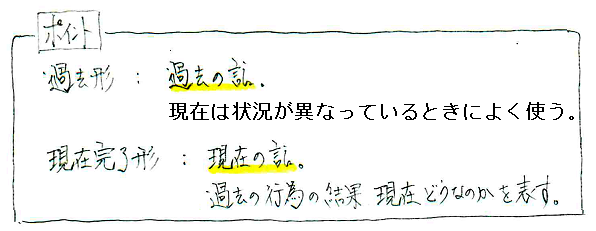 ポイント
過去形 : 過去の話。
現在は状況が異なっているときによく使う。
現在完了形 : 現在の話。
過去の行為の結果 現在どうなのかを表す。